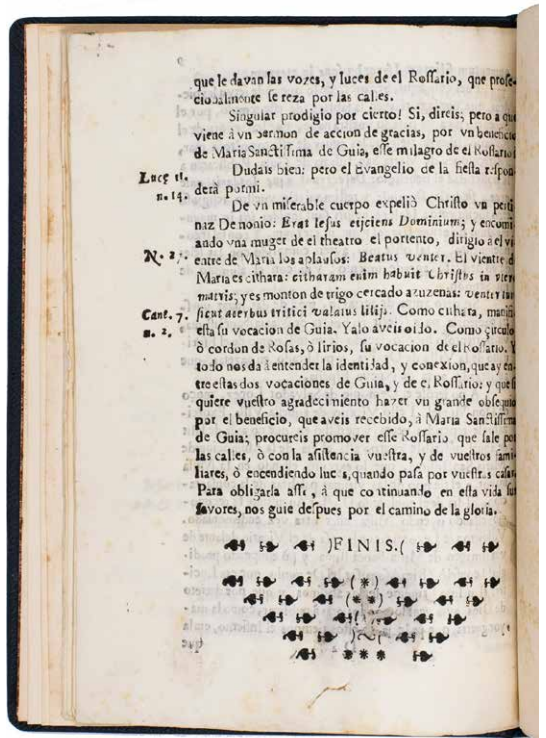 que le davan las vozes, y luces de el Rossario, que prose-
cionalmente se reza por las calles.
Singular prodigio por cierto! Si, direis; pero a que
viene à vn sermon de accion de gracias, por vn beneficio
de Maria Sanctissima de Guia, esse milagro de el Rossario?
Luce 11.
n. 14.
Dudais bien: pero el Evangelio de la fiesta respon-
derà por mi.
De vn miserable cuerpo expeliò Christo vn perti
naz Demonio: Erat Iesus eijciens Dominium; y encomi-
ando vna muger de el theatro el portento, dirigio a el vi
N. 27.
entre de Maria los aplausos: Beatus venter. El vientre de
Maria es cithara: citharam enim habuit Christus in vtero
matris; y es monton de trigo cercado azuzenas: venter tuus
Cant. 7.
n. 2.
sicut acerbus tritici valatus lilijs. Como cithara, manifi
esta su vocacion de Guia. Ya lo aveis oido. Como circulo
ò cordon de Rosas, ò lirios, su vocacion de el Rossario. Y
todo nos da à entender la identidad, y conexion, que ay en
tre estas dos vocaciones de Guia, y de el Rossario: y que si
quiere vuestro agradecimiento hazer vn grande obsequio
por el beneficio, que aveis recebido, à Maria Sanctissima
de Guia; procureis promover esse Rossario, que sale por
las calles, ò con la asistencia vuestra, y de vuestros fami
liares, ò encendiendo luces, quando pasa por vuestras casas
Para obligarla assi, à que continuando en esta vida sus
favores, nos guie despues por el camino de la gloria.
)FINIS.(